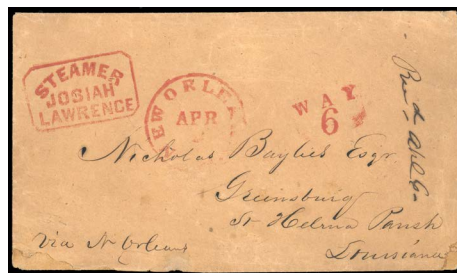 STEAMER
JOSIAH
LAWRENCE
NEW ORLEA
APR
WAY
6
Nicholas Baylies Esqr
Greensburg
St Helena Parish
Louisiana
Via N Orleans